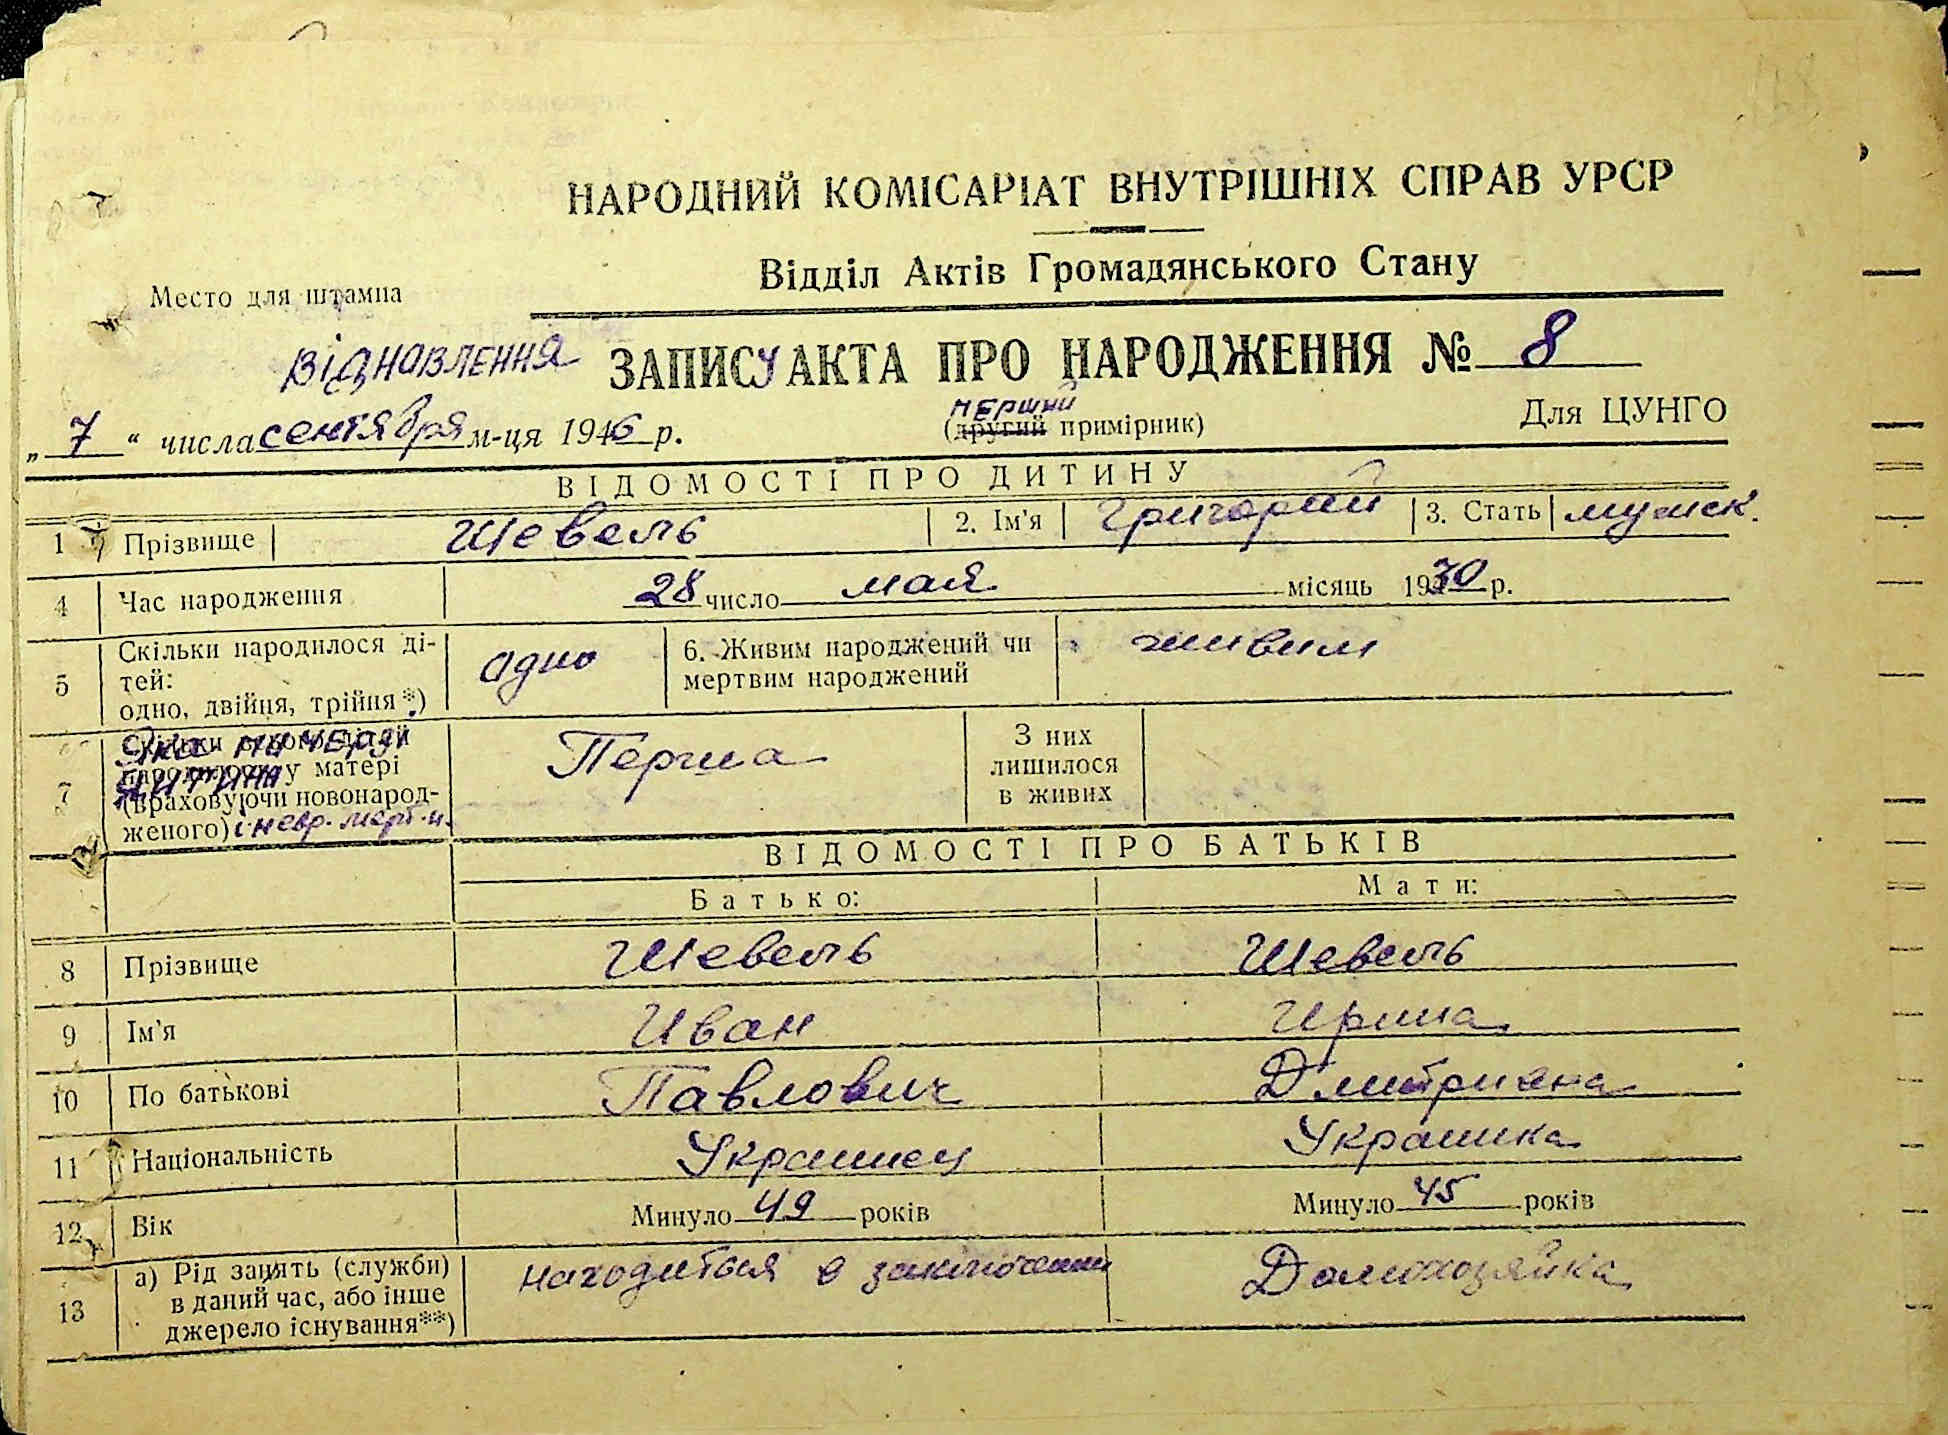 НАРОДНИЙ КОМІСАРІАТ ВНУТРІШНІХ СПРАВ УРСР
Відділ Актів Громадянського Стану
Место для штампа
Відновлення ЗАПИСУ АКТА ПРО НАРОДЖЕННЯ № 8
„ 7 “ числа сентября м-ця 1946 р. перший (другий примірник) Для ЦУНГО
ВІДОМОСТІ ПРО ДИТИНУ
1 Прізвище Шевель 2. Ім'я Григорий 3. Стать мужск.
4 Час народження 28 число мая місяць 1930 р.
5 Скільки народилося ді-
тей:
одно, двійня, трійня*) одно 6. Живим народжений чи
мертвим народжений живим
7 Яка по черзі
дитина у матері
(враховуючи новонарод-
женого) і невр. мерт-н. Перша З них
лишилося
в живих
ВІДОМОСТІ ПРО БАТЬКІВ
Батько: Мати:
8 Прізвище Шевель Шевель
9 Ім'я Иван Ирина
10 По батькові Павлович Дмитриевна
11 Національність Украинец Украинка
12 Вік Минуло 49 років Минуло 45 років
13 а) Рід занять (служби)
в даний час, або інше
джерело існування**) находиться в заключении Домохозяйка